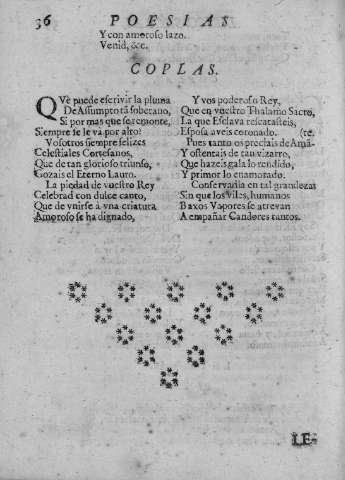 36 POESIAS
Y con amoroso lazo.
Venid, &c.
COPLAS.
QVè puede escrivir la pluma
De Assumpto tã soberano,
Si por mas que se remonte,
Siempre se le và por alto?
Vosotros siempre felizes
Celestiales Cortesanos,
Que de tan glorioso triunfo,
Gozais el Eterno Lauro.
La piedad de vuestro Rey
Celebrad con dulce canto,
Que de vnirse à vna criatura
Amoroso se ha dignado,
Y vos poderoso Rey,
Que en vuestro Thalamo Sacro,
La que Esclava rescatasteis,
Esposa aveis coronado. (te.
Pues tanto os preciais de Amã-
Y ostentais de tan vizarro,
Que hazeis gala lo rendido,
Y primor lo enamorado.
Conservadla en tal grandeza
Sin que los viles, humanos
Baxos Vapores se atrevan
A empañar Candores tantos.
LE-